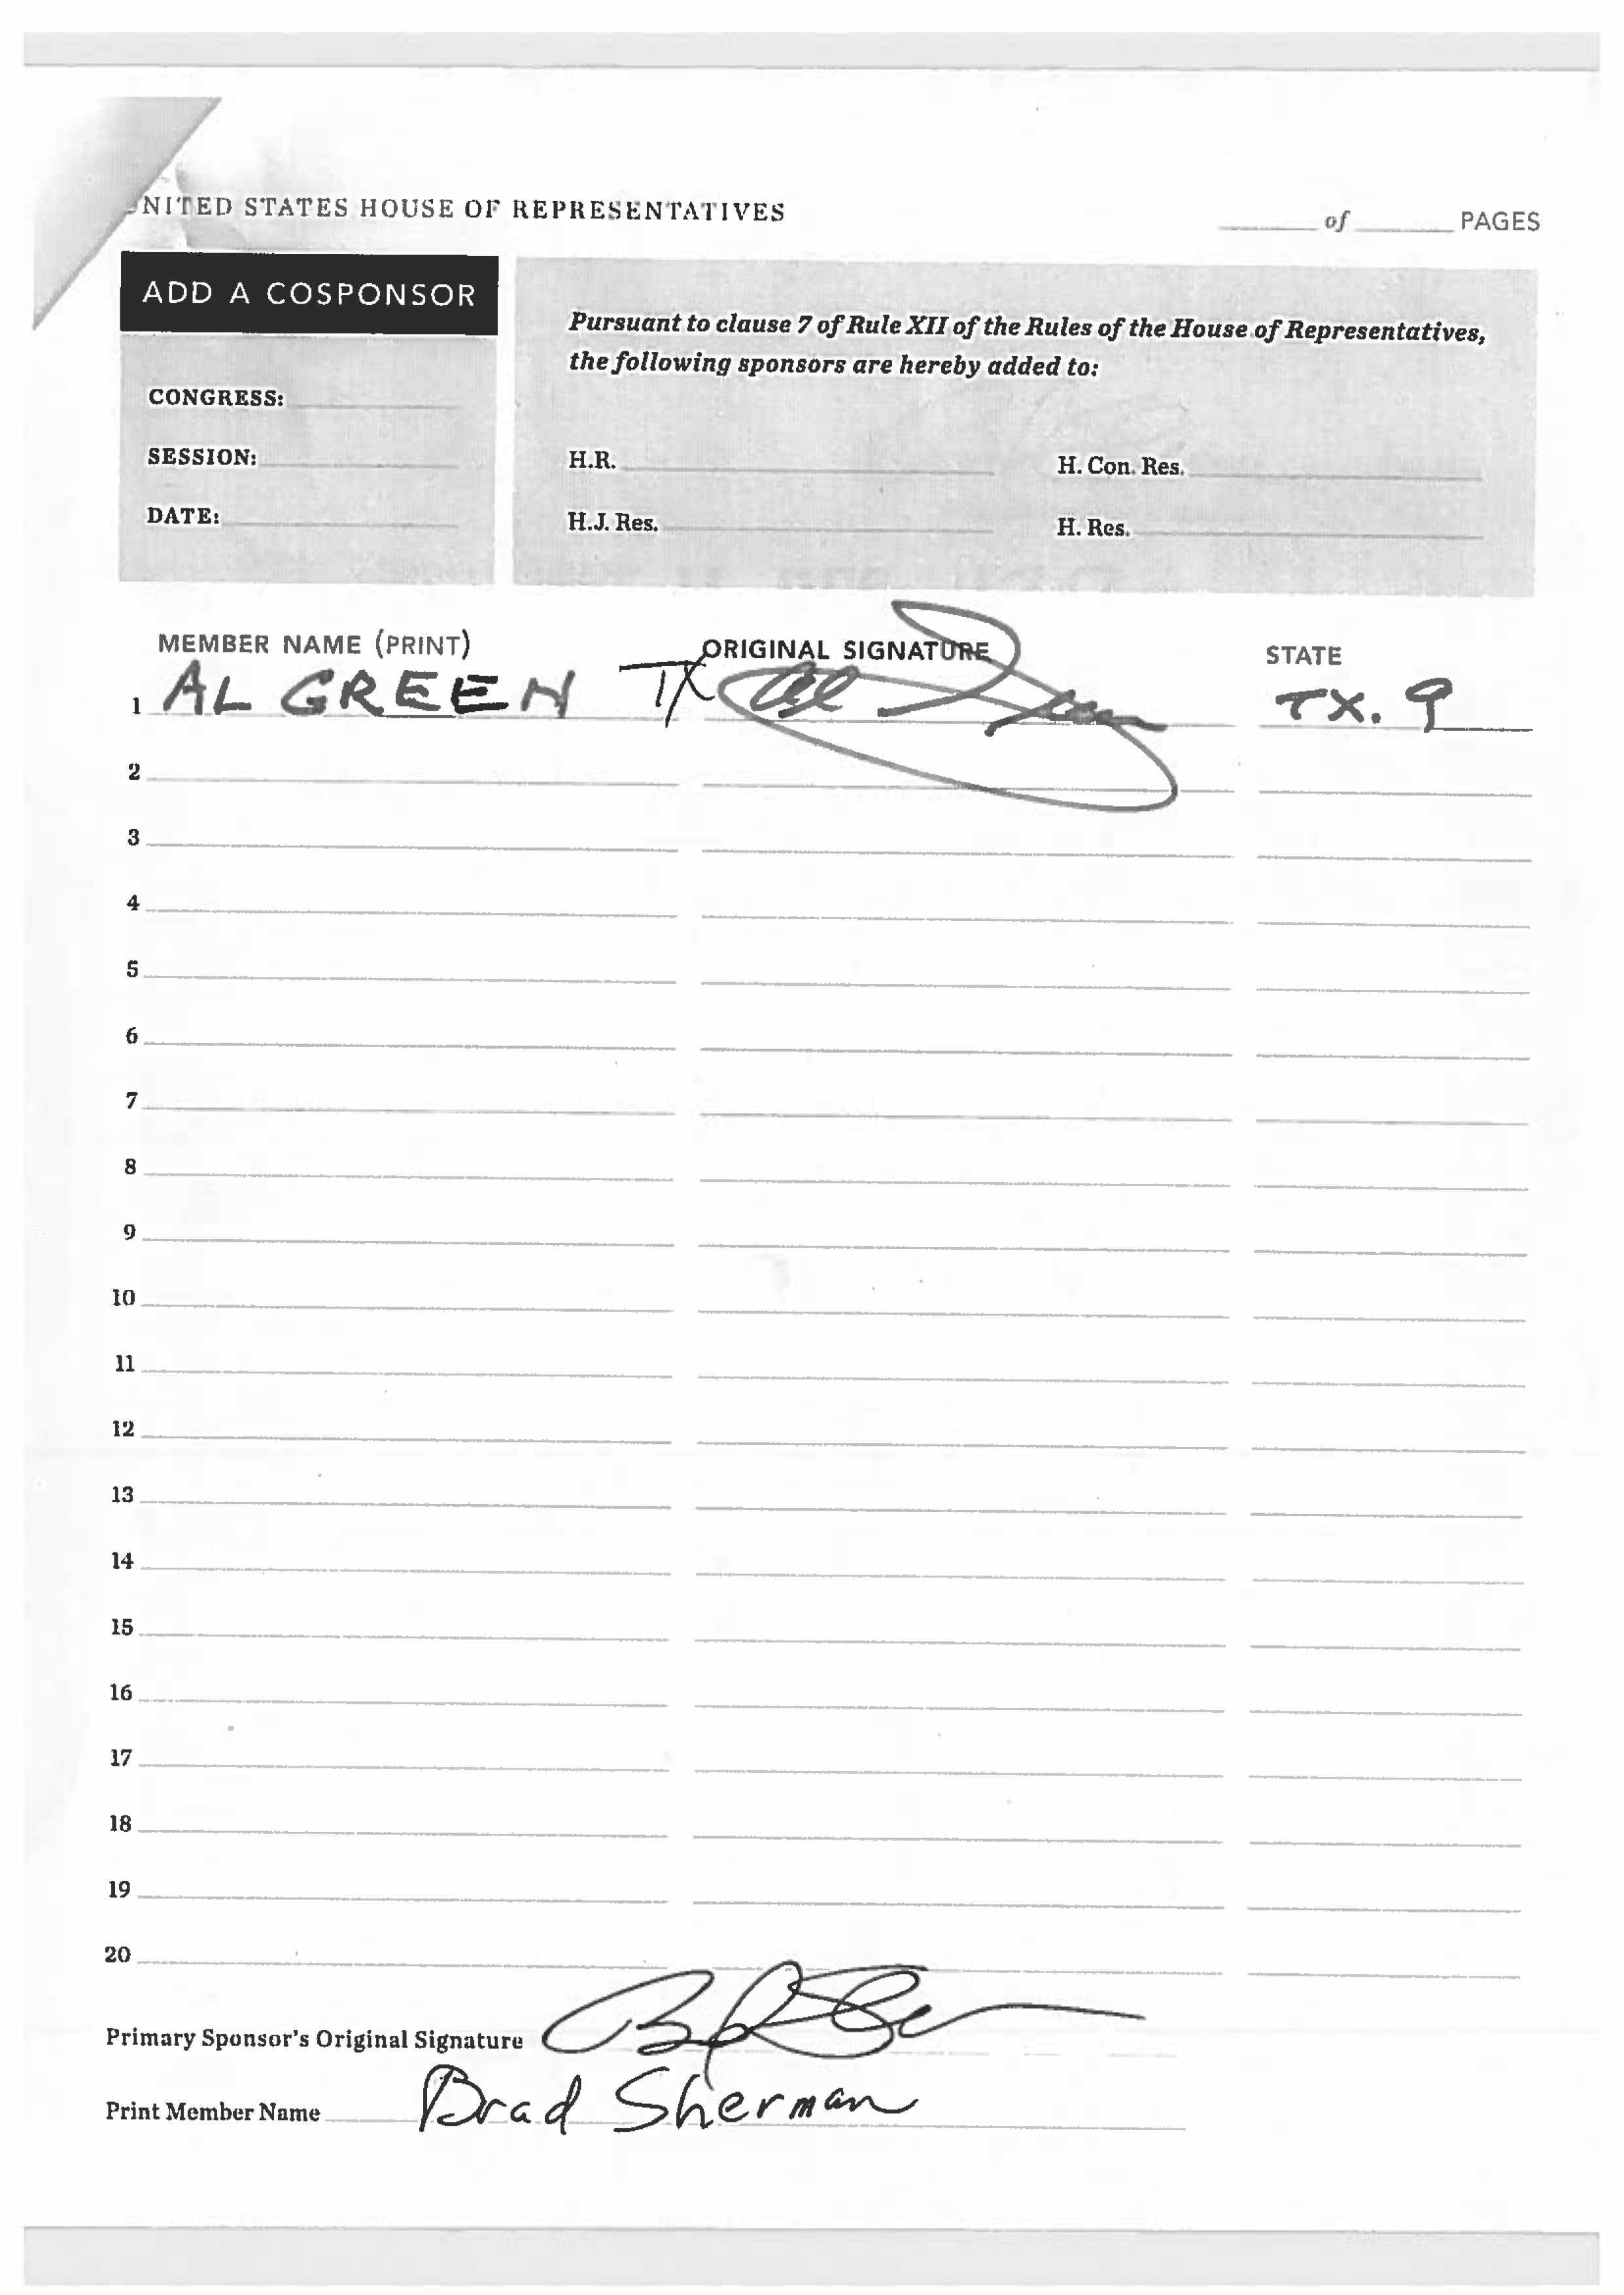 NITED STATES HOUSE OF REPRESENTATIVES
of PAGES
ADD A COSPONSOR
CONGRESS:
SESSION:
DATE:
Pursuant to clause 7 of Rule XII of the Rules of the House of Representatives,
the following sponsors are hereby added to:
H.R. H. Con. Res.
H.J. Res. H. Res.
MEMBER NAME (PRINT) ORIGINAL SIGNATURE STATE
1 AL GREEN TX Al Green TX. 9
2
3
4
5
6
7
8
9
10
11
12
13
14
15
16
17
18
19
20
Primary Sponsor's Original Signature
Print Member Name Brad Sherman